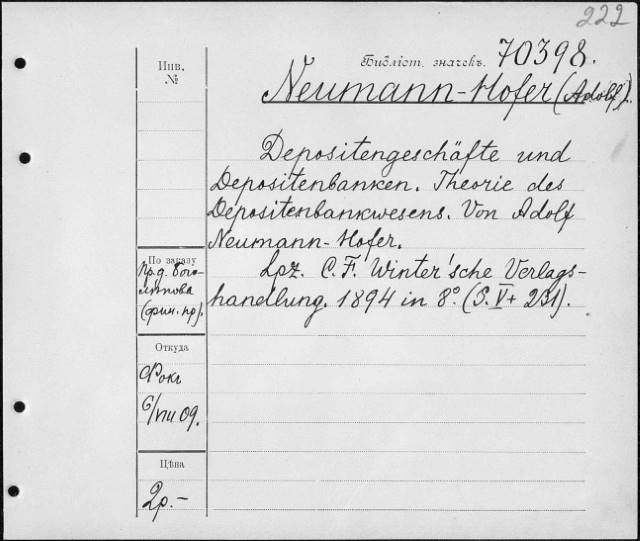 222
Инв. №
Библіот. значекъ. 70398.
Neumann-Hofer (Adolf).
Depositengeschäfte und
Depositenbanken. Theorie des
Depositenbankwesens. Von Adolf
Neumann-Hofer.
Lpz. C. F. Winter'sche Verlags-
handlung. 1894 in 8° (S. V + 231).
По заказу
Пр. д. Бого-
лѣпова
(фин. пр).
Откуда
Фокъ
6/VIII 09.
Цѣна
2р.-